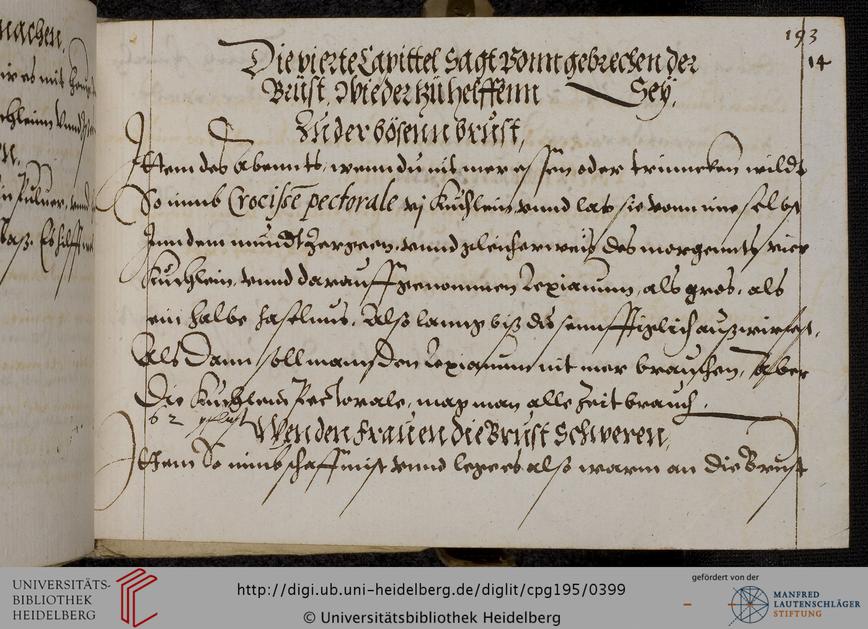 machen.
193
14
Die vierte Capittel Sagt vonn gebrechen der
Brüst, Wie der Zu helffenn Sey,
Zu der bösenn brust,
Ittem des abennts, wenn du nit mer essen oder trinncken wildt
So nimb Crocisce pectorale vj Küchlein, vnnd las sie vonn ime selbst
Inn dem mundt Zergeen, vnnd gleicherweiß des morgennts vier
Küchlein, vnnd darauff genommen Loxianum, als gros, als
ein halbe haselnus, Also lanng biß du sennfftiglich außwirfest,
Als Dann soll man den Loxianum nit mer brauchen, Aber
Die Küchlein Pectorale, mag man alle Zeit brauch
62
Wen den Frauen die Brüst Schweren,
Ittem So nimb schaffmist vnnd lege es also warm an die Brust
UNIVERSITÄTS-
BIBLIOTHEK
HEIDELBERG
http://digi.ub.uni-heidelberg.de/diglit/cpg195/0399
© Universitätsbibliothek Heidelberg
gefördert von der
MANFRED
LAUTENSCHLÄGER
STIFTUNG